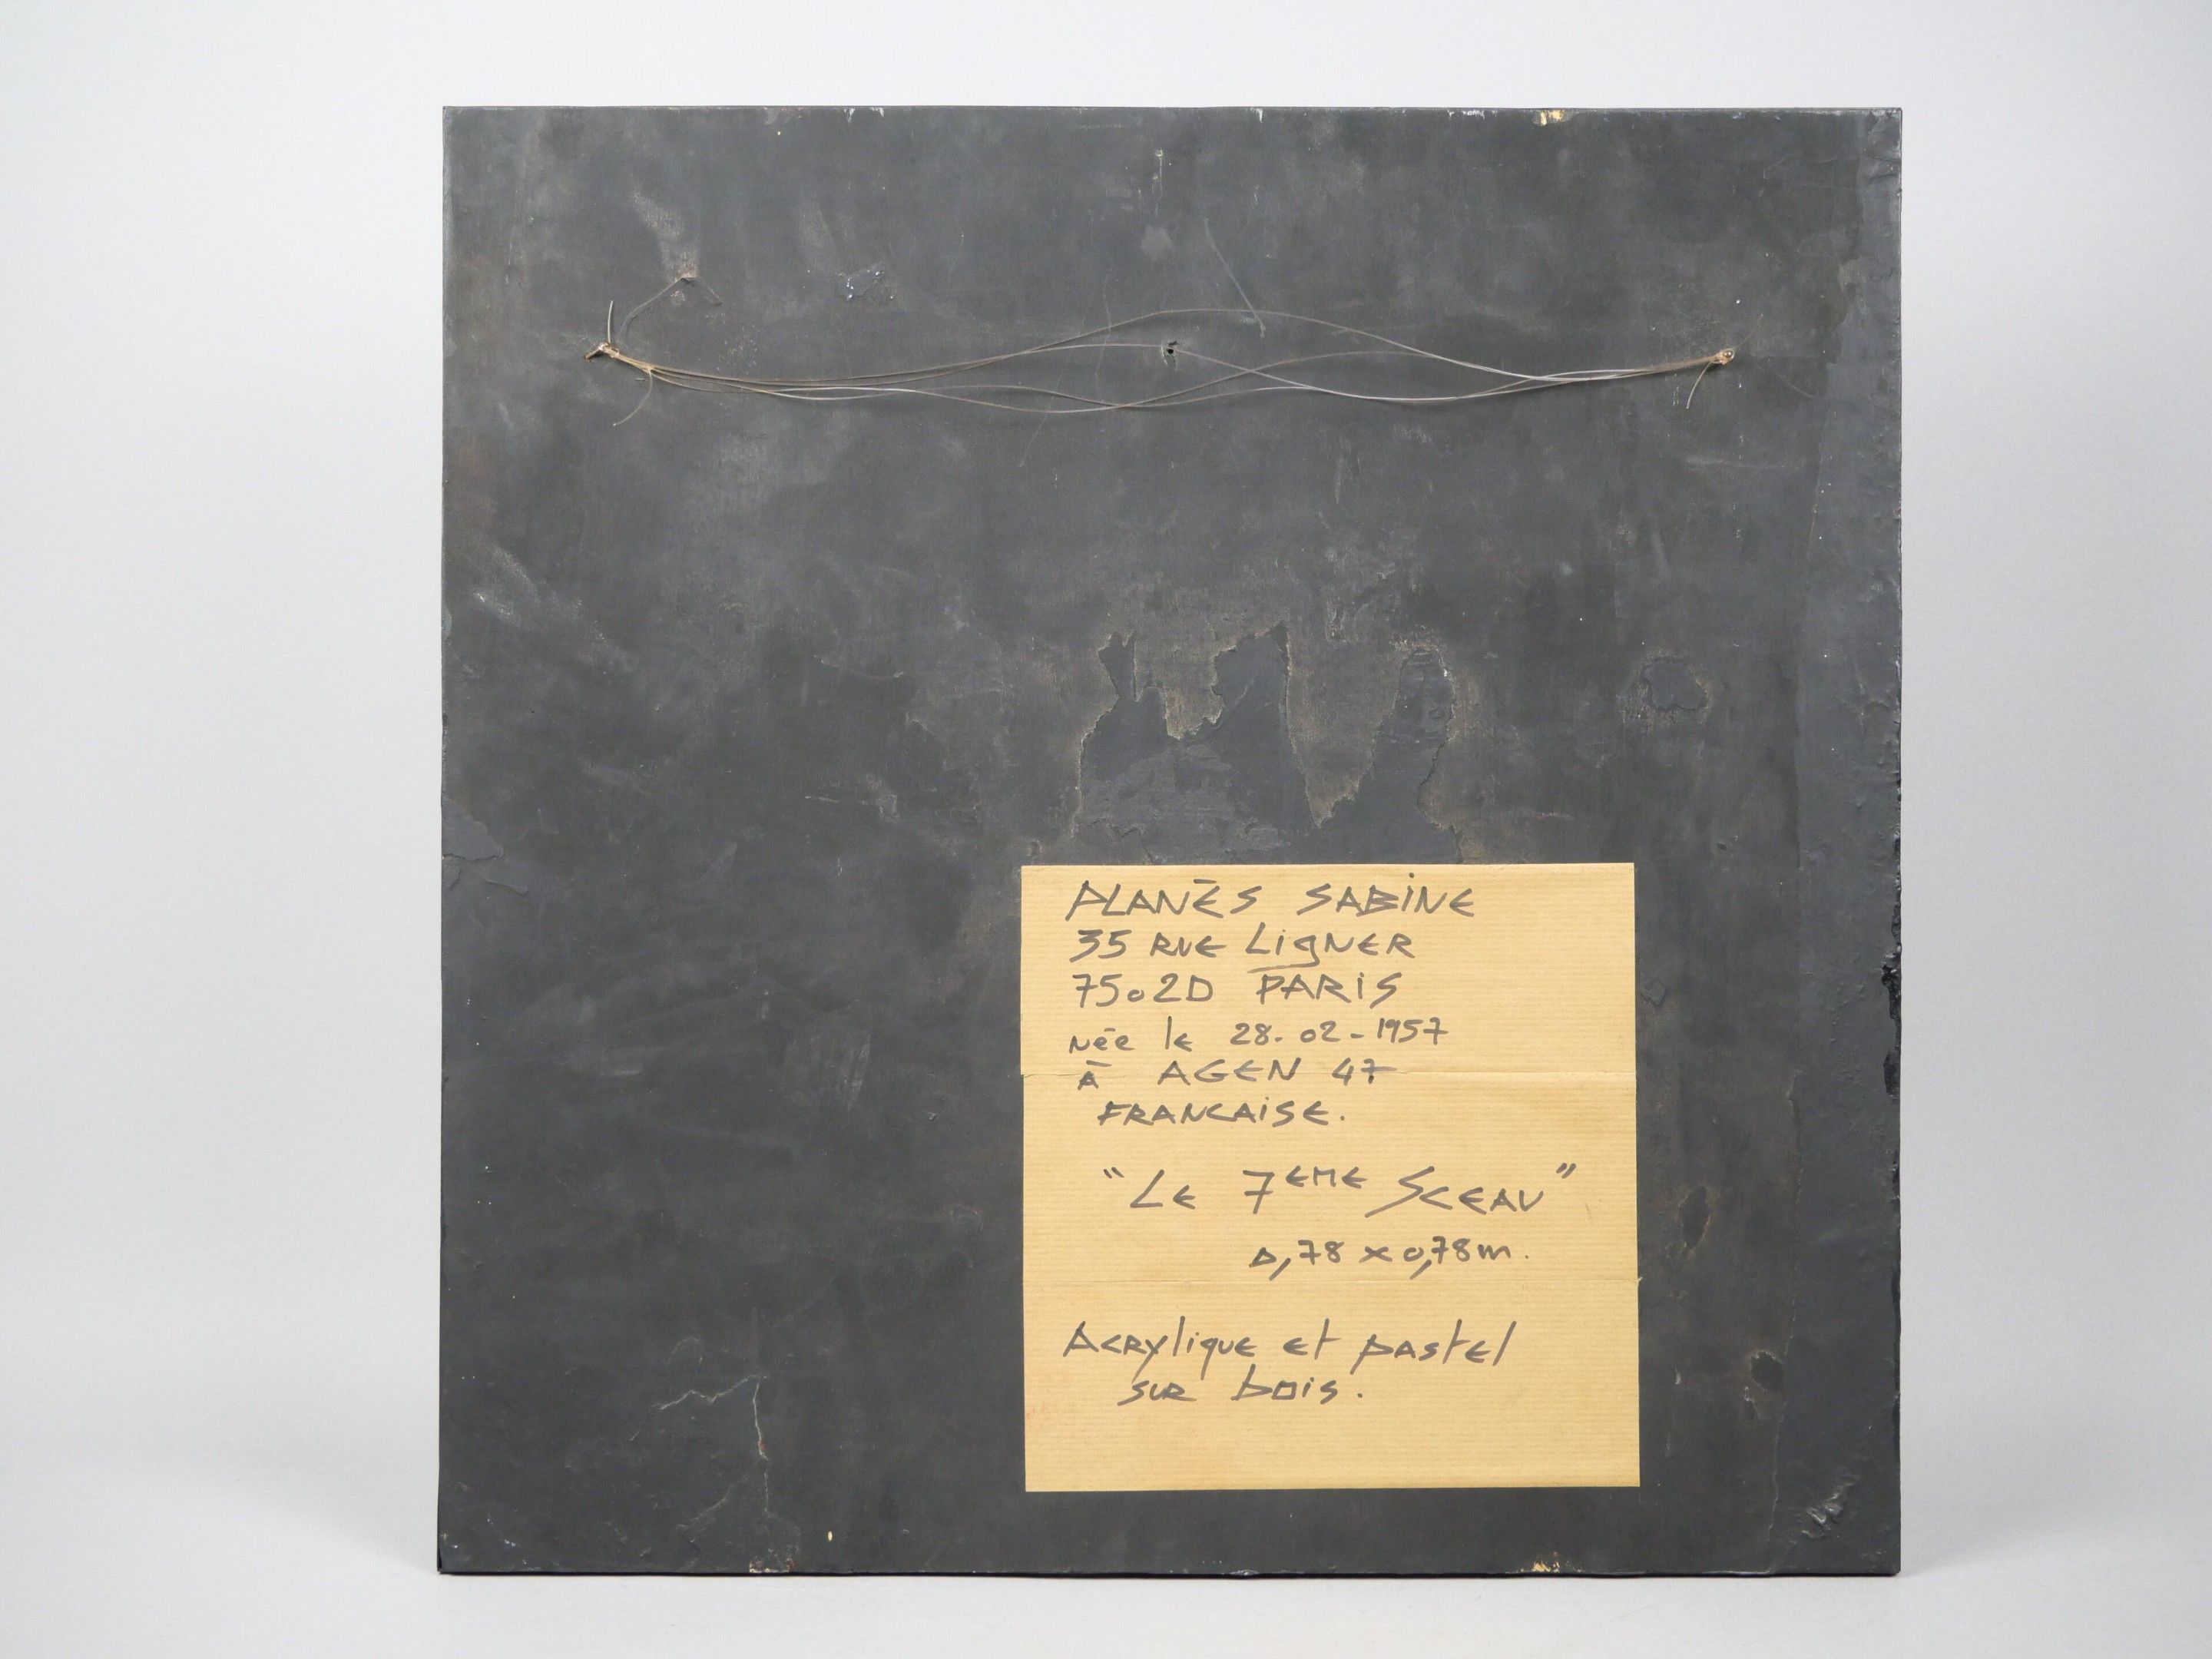 PLANÈS SABINE
35 RUE LIGNER
75020 PARIS
NÉE le 28-02-1957
À AGEN 47
FRANCAISE.
"LE 7EME SCEAU"
0,78 x 0,78 m.
ACRYlIQUE Et pAStEl
SUR bois.